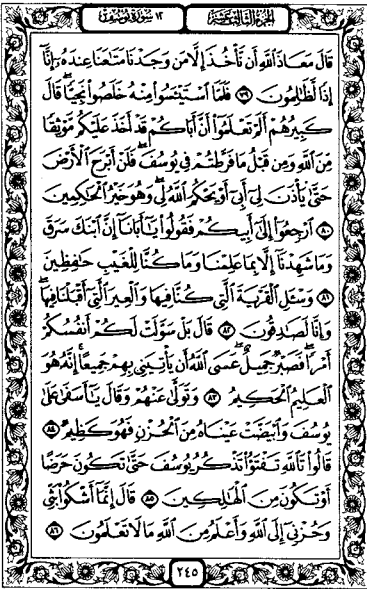 الجزء الثالث عشر ١٢ سورة يوسف
قَالَ مَعَاذَ ٱللَّهِ أَن نَّأۡخُذَ إِلَّا مَن وَجَدۡنَا مَتَٰعَنَا عِندَهُۥٓ إِنَّآ
إِذٗا لَّظَٰلِمُونَ ٧٩ فَلَمَّا ٱسۡتَيۡـَٔسُواْ مِنۡهُ خَلَصُواْ نَجِيّٗاۖ قَالَ
كَبِيرُهُمۡ أَلَمۡ تَعۡلَمُوٓاْ أَنَّ أَبَاكُمۡ قَدۡ أَخَذَ عَلَيۡكُم مَّوۡثِقٗا
مِّنَ ٱللَّهِ وَمِن قَبۡلُ مَا فَرَّطتُمۡ فِي يُوسُفَۖ فَلَنۡ أَبۡرَحَ ٱلۡأَرۡضَ
حَتَّىٰ يَأۡذَنَ لِيٓ أَبِيٓ أَوۡ يَحۡكُمَ ٱللَّهُ لِيۖ وَهُوَ خَيۡرُ ٱلۡحَٰكِمِينَ
٨٠ ٱرۡجِعُوٓاْ إِلَىٰٓ أَبِيكُمۡ فَقُولُواْ يَٰٓأَبَانَآ إِنَّ ٱبۡنَكَ سَرَقَ
وَمَا شَهِدۡنَآ إِلَّا بِمَا عَلِمۡنَا وَمَا كُنَّا لِلۡغَيۡبِ حَٰفِظِينَ
٨١ وَسۡـَٔلِ ٱلۡقَرۡيَةَ ٱلَّتِي كُنَّا فِيهَا وَٱلۡعِيرَ ٱلَّتِيٓ أَقۡبَلۡنَا فِيهَاۖ
وَإِنَّا لَصَٰدِقُونَ ٨٢ قَالَ بَلۡ سَوَّلَتۡ لَكُمۡ أَنفُسُكُمۡ
أَمۡرٗاۖ فَصَبۡرٞ جَمِيلٌۖ عَسَى ٱللَّهُ أَن يَأۡتِيَنِي بِهِمۡ جَمِيعًاۚ إِنَّهُۥ هُوَ
ٱلۡعَلِيمُ ٱلۡحَكِيمُ ٨٣ وَتَوَلَّىٰ عَنۡهُمۡ وَقَالَ يَٰٓأَسَفَىٰ عَلَىٰ
يُوسُفَ وَٱبۡيَضَّتۡ عَيۡنَاهُ مِنَ ٱلۡحُزۡنِ فَهُوَ كَظِيمٞ ٨٤
قَالُواْ تَٱللَّهِ تَفۡتَؤُاْ تَذۡكُرُ يُوسُفَ حَتَّىٰ تَكُونَ حَرَضًا
أَوۡ تَكُونَ مِنَ ٱلۡهَٰلِكِينَ ٨٥ قَالَ إِنَّمَآ أَشۡكُواْ بَثِّي
وَحُزۡنِيٓ إِلَى ٱللَّهِ وَأَعۡلَمُ مِنَ ٱللَّهِ مَا لَا تَعۡلَمُونَ ٨٦
٢٤٥